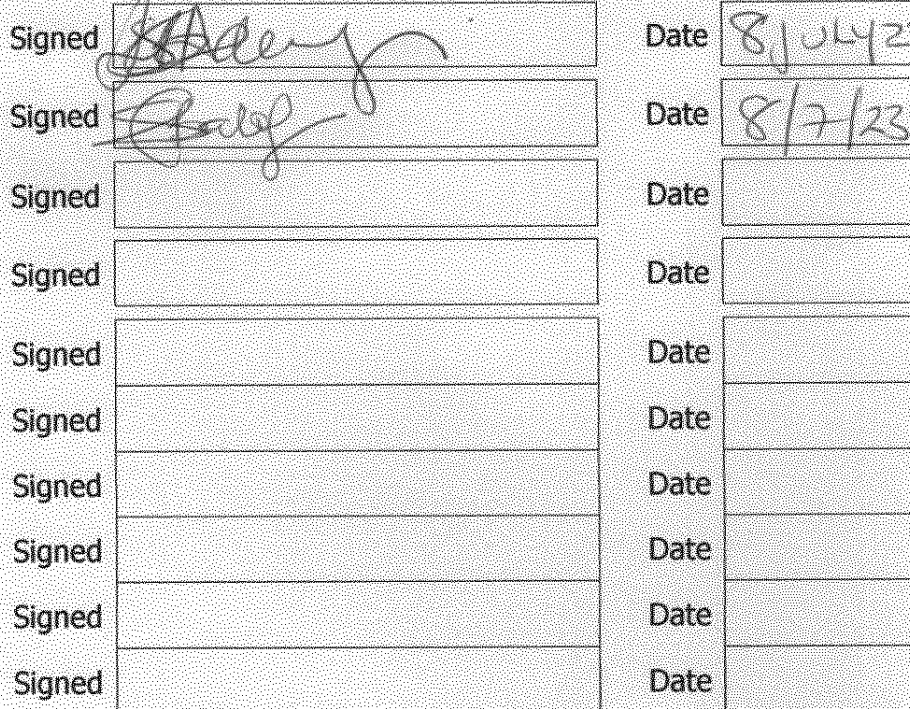 Signed Date 8 JULY 2
Signed Date 8/7/23
Signed Date
Signed Date
Signed Date
Signed Date
Signed Date
Signed Date
Signed Date
Signed Date